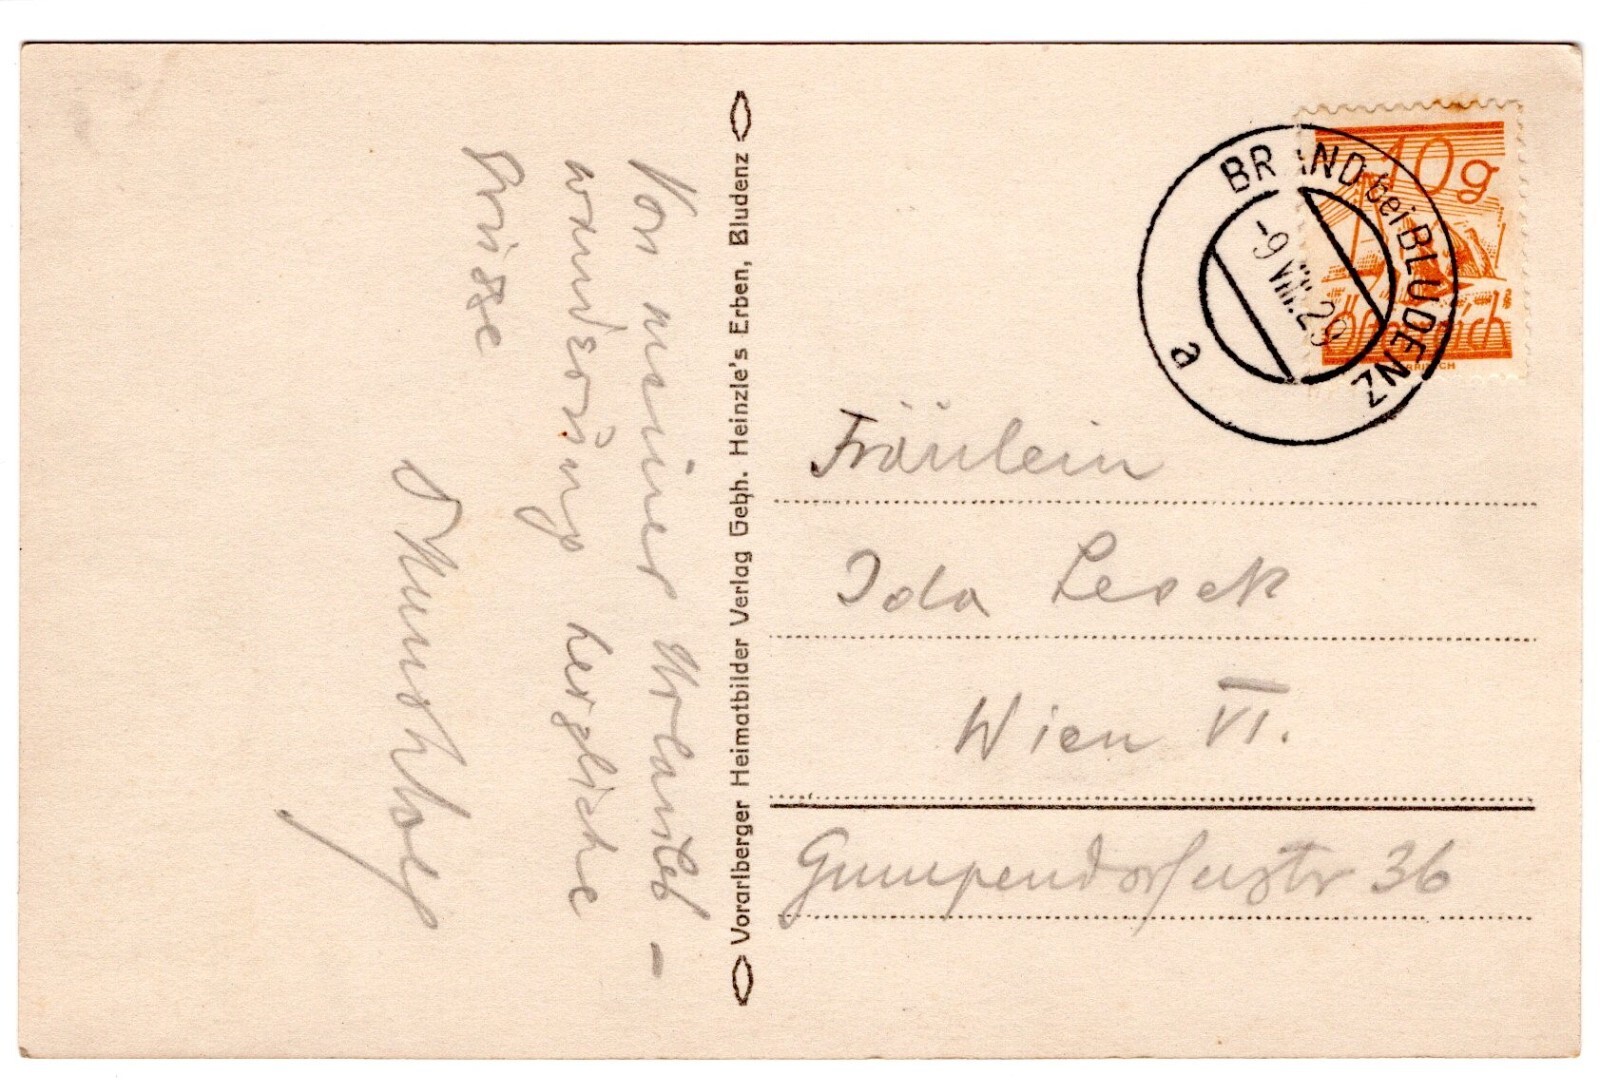 Von meiner Urlaubs-
wanderung herzliche
Grüsse
Vorarlberger Heimatbilder Verlag Gebh. Heinzle's Erben, Bludenz
10g
Österreich
BRAND bei BLUDENZ
-9.VIII.29
a
Fräulein
Ida Lesek
Wien VI.
Gumpendorferstr 36